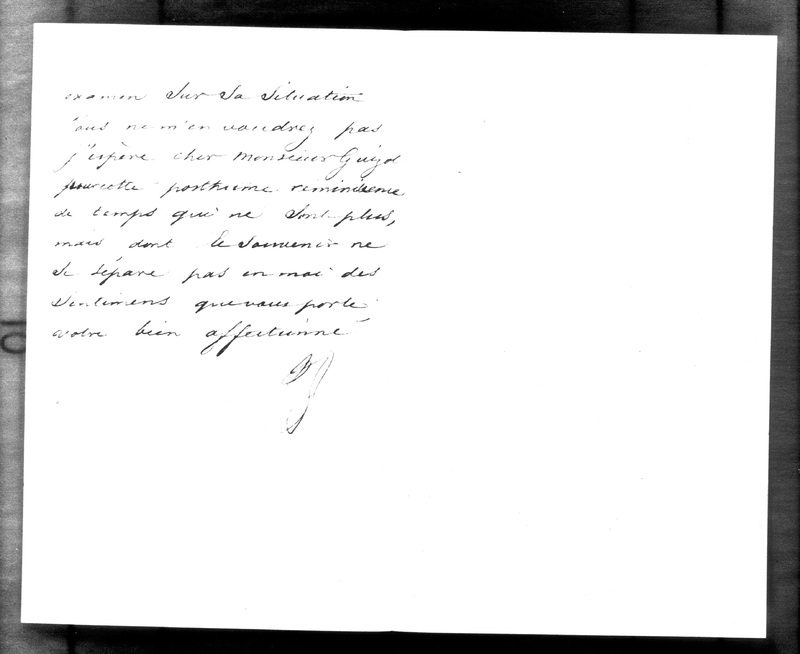 examen sur sa situation
Vous ne m'en voudrez pas
j'espère cher Monsieur Guizot
pour cette posthume reminiscence
de temps qui ne sont plus,
mais dont le souvenir ne
se sépare pas en moi des
sentimens que vous porte
votre bien affectionné